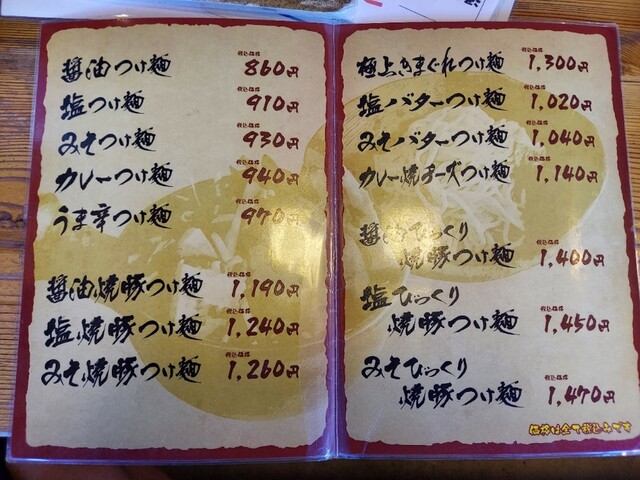 税込価格
醤油つけ麺 860円
税込価格
塩つけ麺 910円
税込価格
みそつけ麺 930円
税込価格
カレーつけ麺 940円
税込価格
うま辛つけ麺 970円
税込価格
醤油焼豚つけ麺 1,190円
税込価格
塩焼豚つけ麺 1,240円
税込価格
みそ焼豚つけ麺 1,260円
税込価格
極上きまぐれつけ麺 1,300円
税込価格
塩バターつけ麺 1,020円
税込価格
みそバターつけ麺 1,040円
税込価格
カレー焼チーズつけ麺 1,140円
醤油びっくり
税込価格
焼豚つけ麺 1,400円
塩びっくり
税込価格
焼豚つけ麺 1,450円
みそびっくり
税込価格
焼豚つけ麺 1,470円
価格は全て税込みです